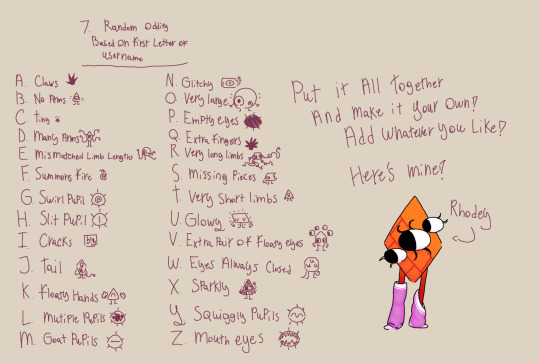 7. Random Oddity
Based on First Letter of
username
A. Claws
B. No Arms
C Tiny
D. Many Arms
E Mismatched Limb Lengths
F. Summons Fire
G Swirl Pupil
H. Slit Pupil
I. Cracks
J. Tail
K. Floaty Hands
L. Mutiple Pupils
M. Goat Pupils
N. Glitchy
O. Very large
P. Empty eyes
Q. Extra Fingers
R. Very long limbs
S. Missing Pieces
T. Very Short limbs
U. Glowy
V. Extra Pair of Floaty eyes
W. Eyes Always Closed
X. Sparkly
Y. Squiggly Pupils
Z. Mouth eyes
Put it All together
And make it your Own!
Add Whatever you Like!
Here's mine!
Rhodey